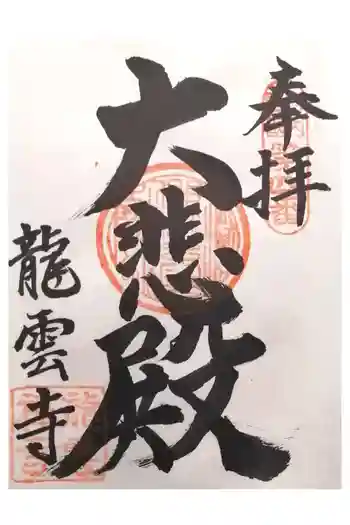 奉拝
大悲殿
龍雲寺